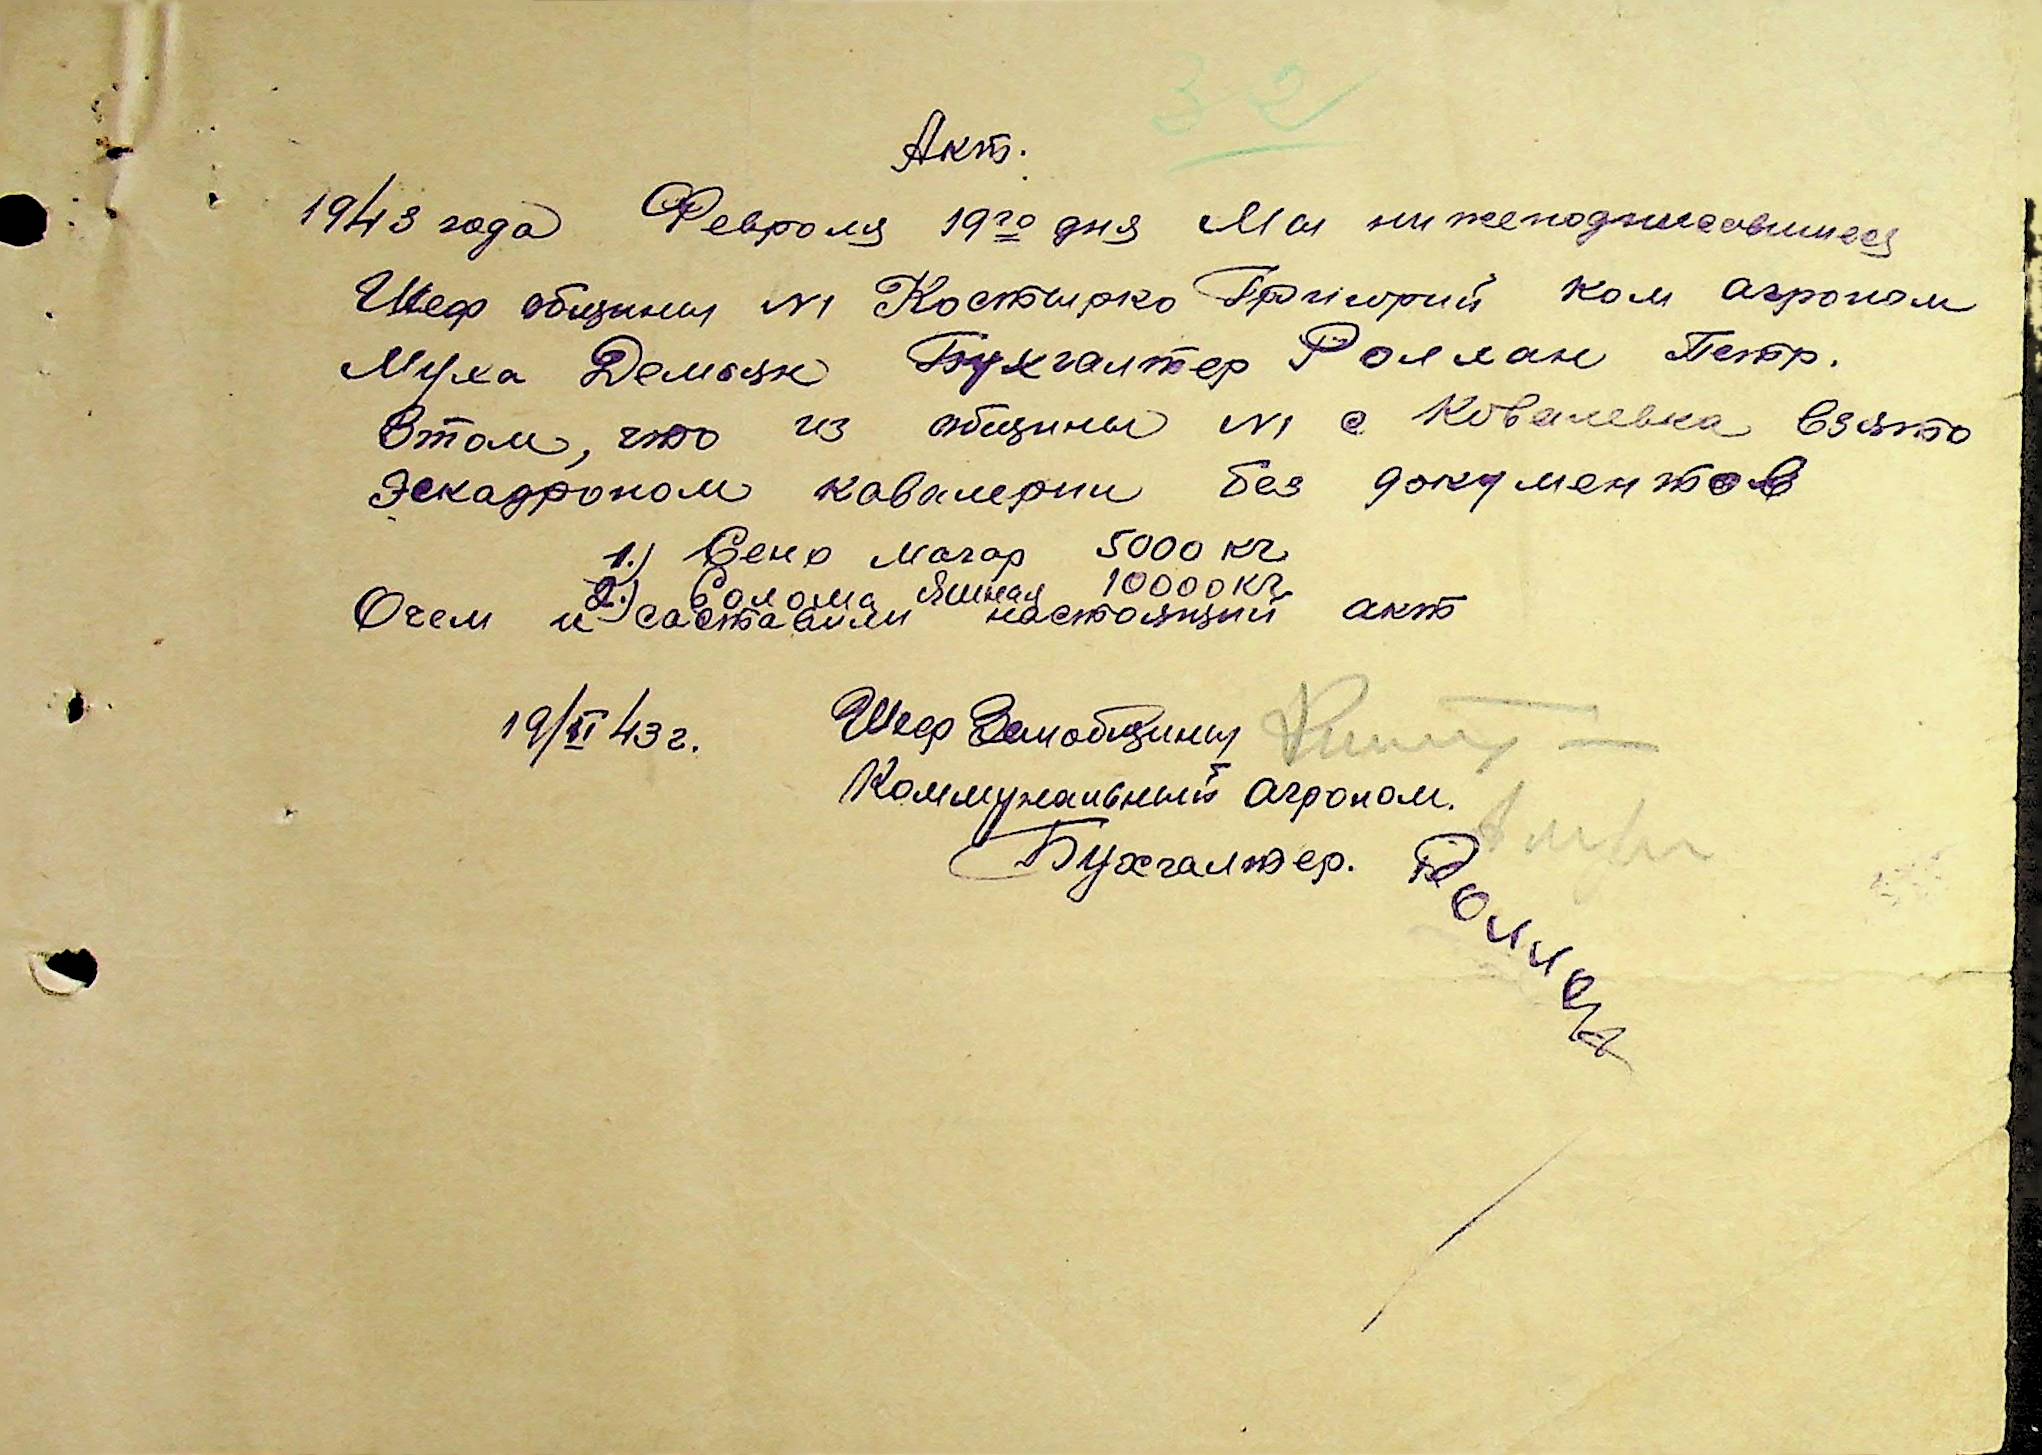 32
Акт.
1943 года Февроля 19го дня Мы нижеподписовшиеся
Шеф общины №1 Костырко Григорий ком агроном
Муха Демьян Бухгалтер Роллан Петр.
Втом, что из общины №1 с Ковалевка взято
Эскадроном кавалерии без документов
1.) Сено могар 5000 кг
2.) Солома Ячная 10000 кг
Очем и составили настоящий акт
19/II 43 г. Шеф Земобщины
Коммунальный агроном.
Бухгалтер. Роллан